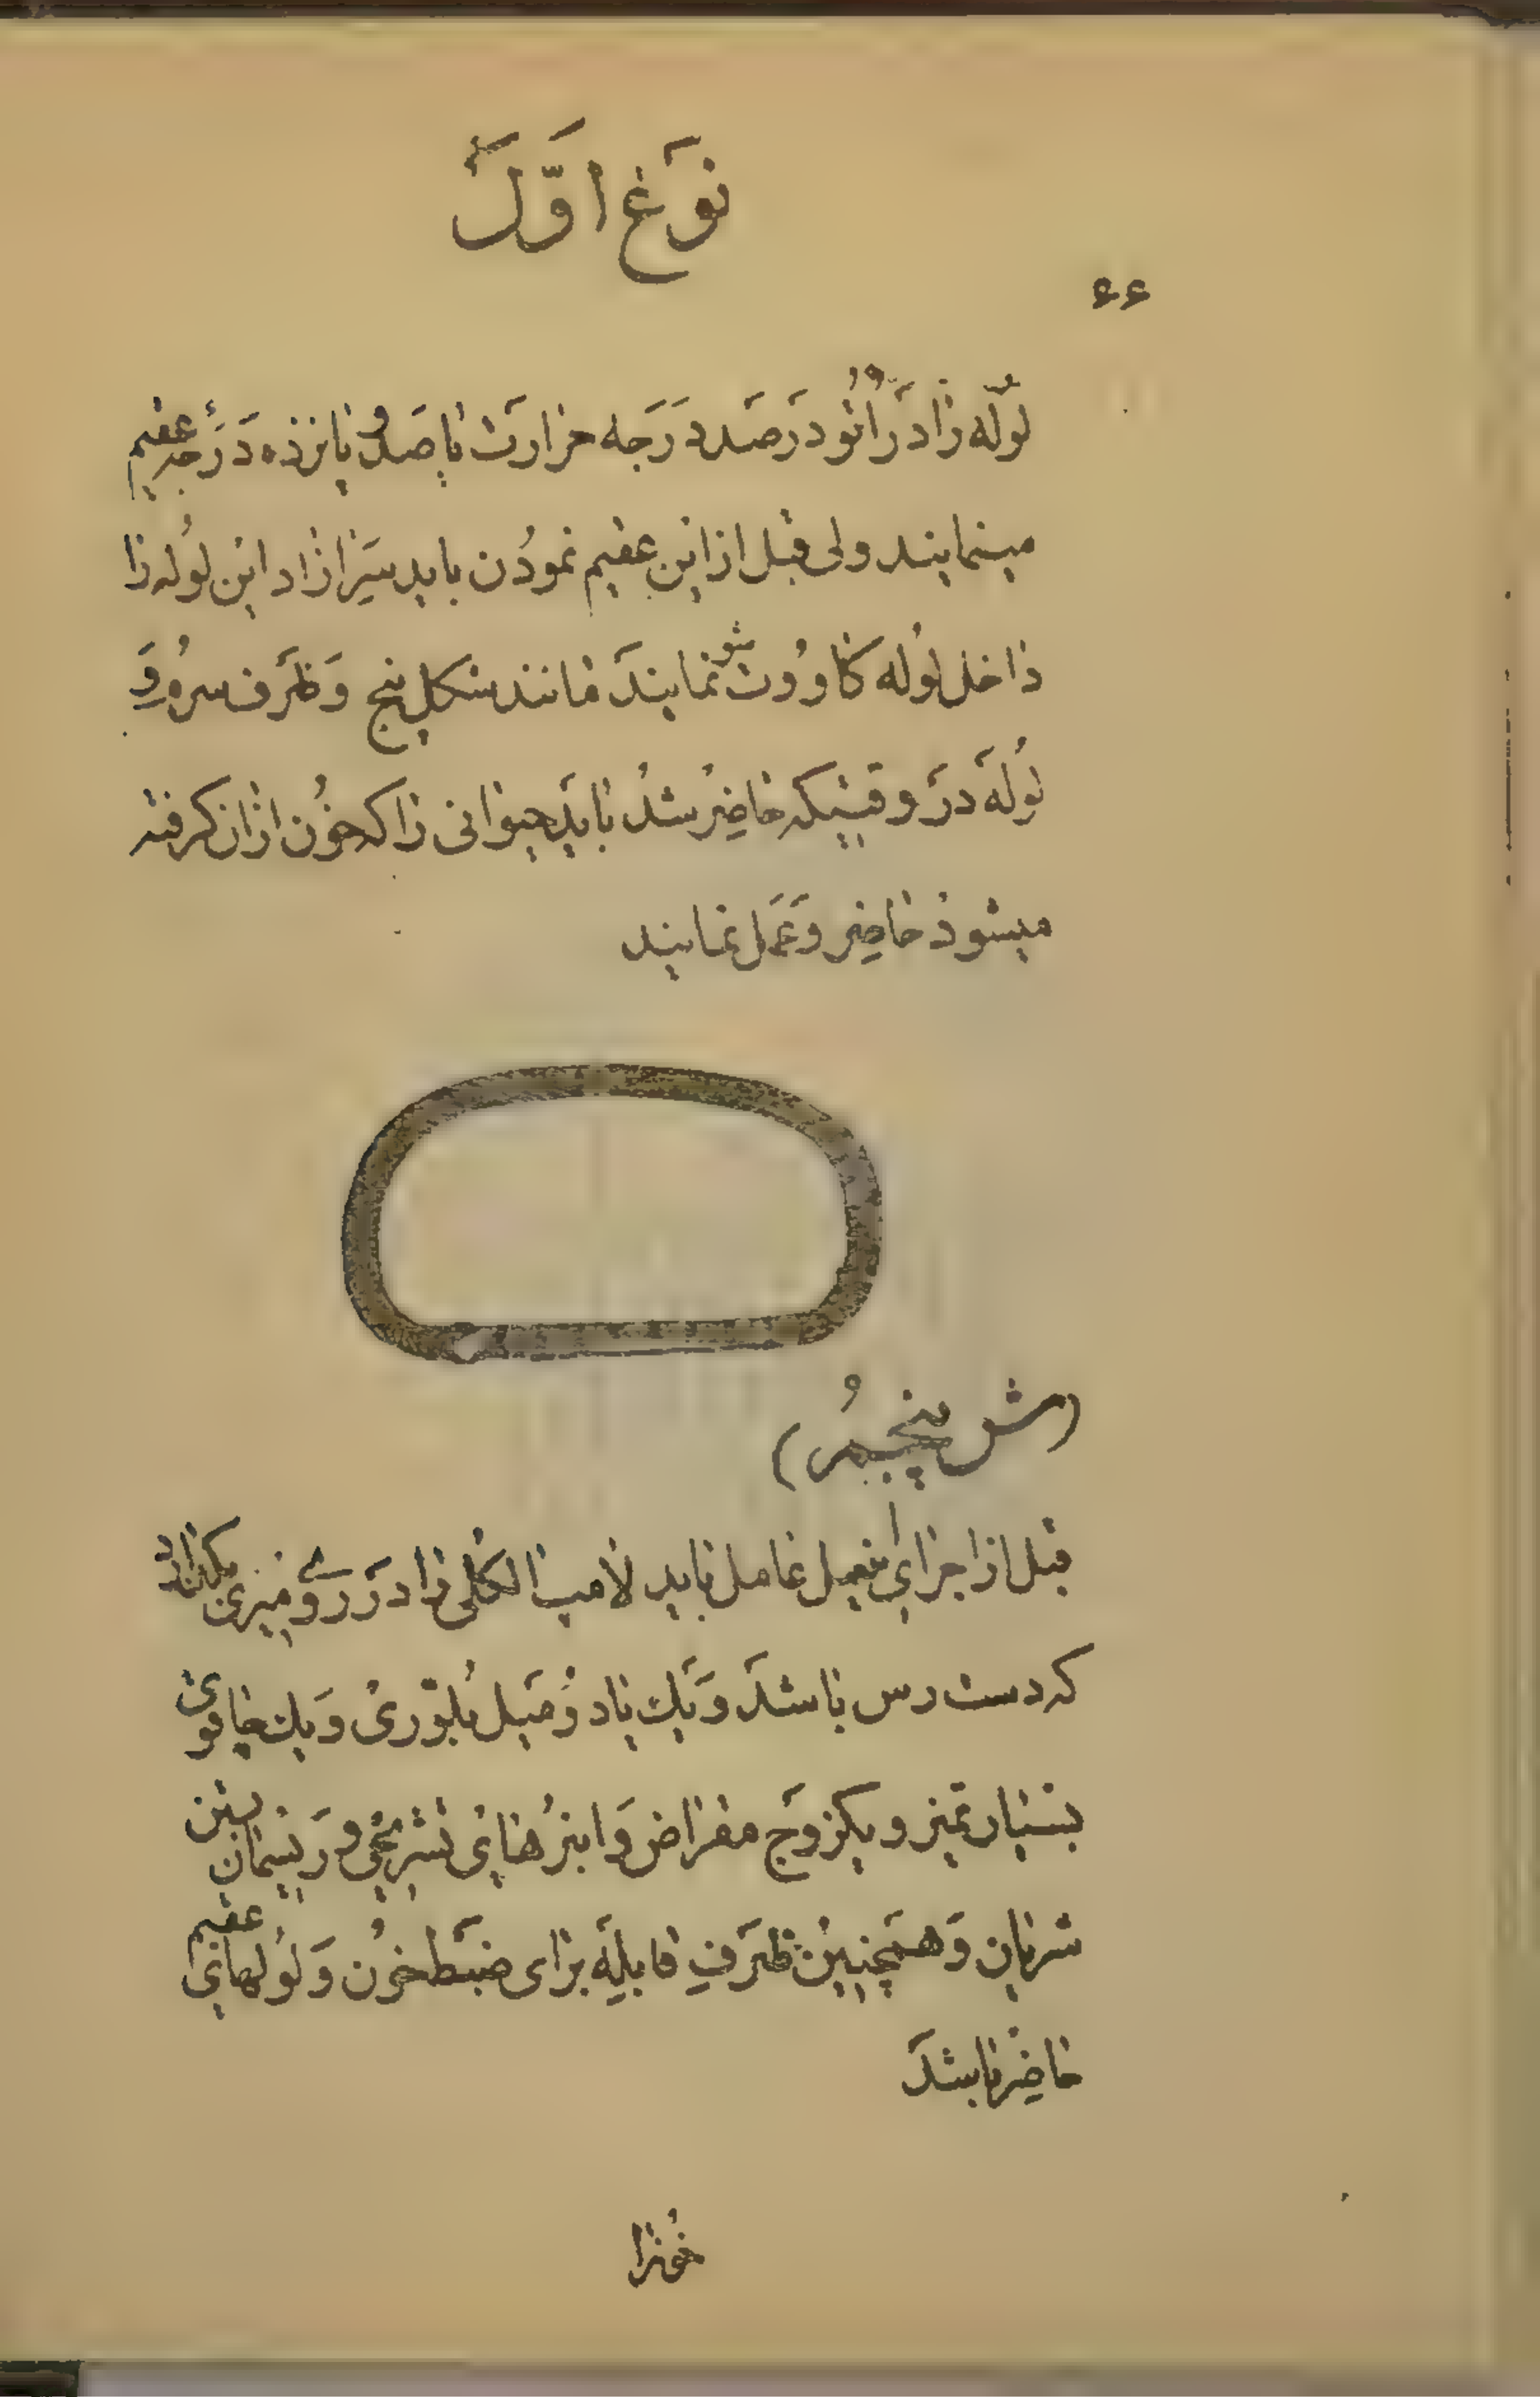 نوع اوّل
۶۶
لوله را در اتو در صد درجه حرارت تا صد و پانزده درجه عقیم
مینمایند ولی قبل از این عقیم نمودن باید سر آزاد این لوله را
داخل لوله کااوچوت نمایند مانند شکل پنج و ظرف سرم و
لوله در وقتیکه حاضر شد باید حیوانی را که خون از آن گرفته
میشود حاضر و عمل نمایند
(ش پنجم)
قبل از اجرای عمل عامل باید لامپ الکلی را در روی میزی بگذارد
که دست رس باشد و یک یا دو میل بلوری و یک چاقوی
بسیار تمیز و یکزوج مقراض و انبرهای تشریحی و ریسمان بستن
شریان و همچنین ظرف قابله برای ضبط خون و لولهای عقیم
حاضر باشد
خونرا